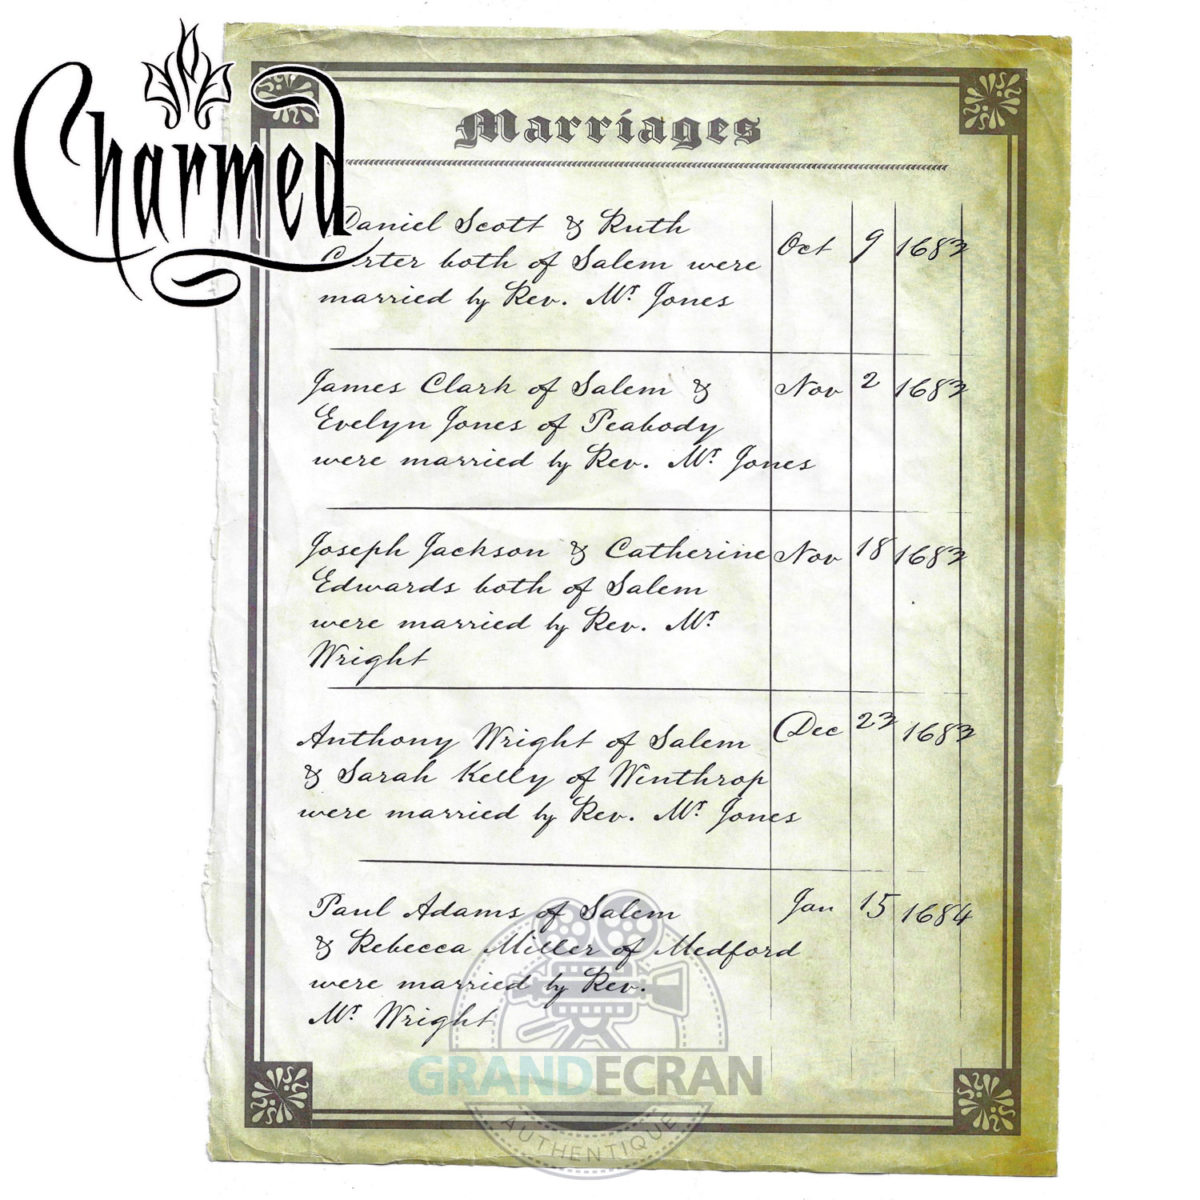 Charmed
Marriages
Daniel Scott & Ruth
Carter both of Salem were
married by Rev. Mr Jones
Oct 9 1683
James Clark of Salem &
Evelyn Jones of Peabody
were married by Rev. Mr Jones
Nov 2 1683
Joseph Jackson & Catherine
Edwards both of Salem
were married by Rev. Mr
Wright
Nov 18 1683
Anthony Wright of Salem
& Sarah Kelly of Winthrop
were married by Rev. Mr Jones
Dec 23 1683
Paul Adams of Salem
& Rebecca Miller of Medford
were married by Rev.
Mr Wright
Jan 15 1684
GRANDECRAN
AUTHENTIQUE